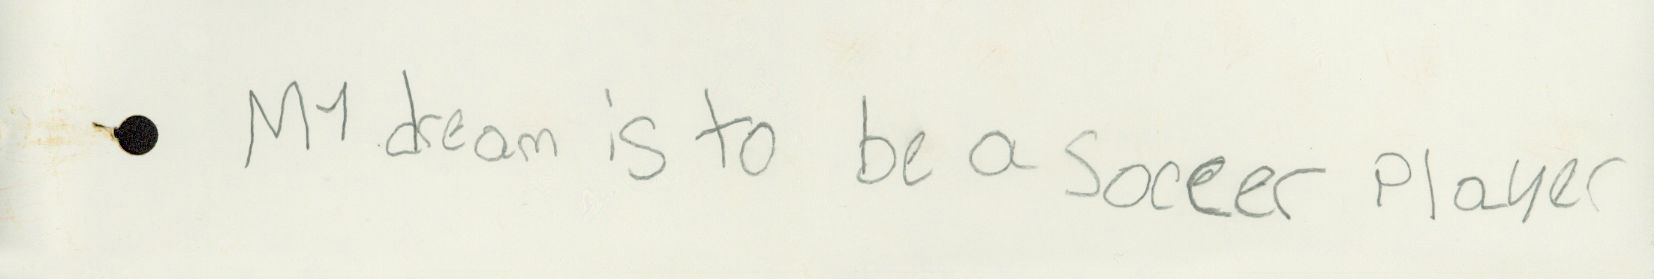 My dream is to be a Soccer Player